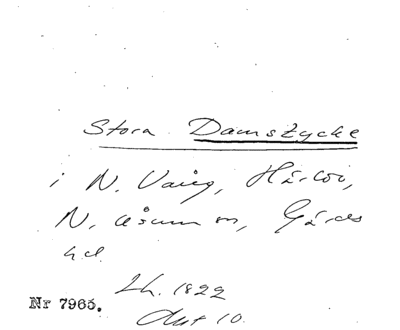 Stora Damstycke
i N. Vång, Härlöv,
N. Åsum m, Gärds
hd.
Lh. 1822
Akt 10.
Nr 7965.